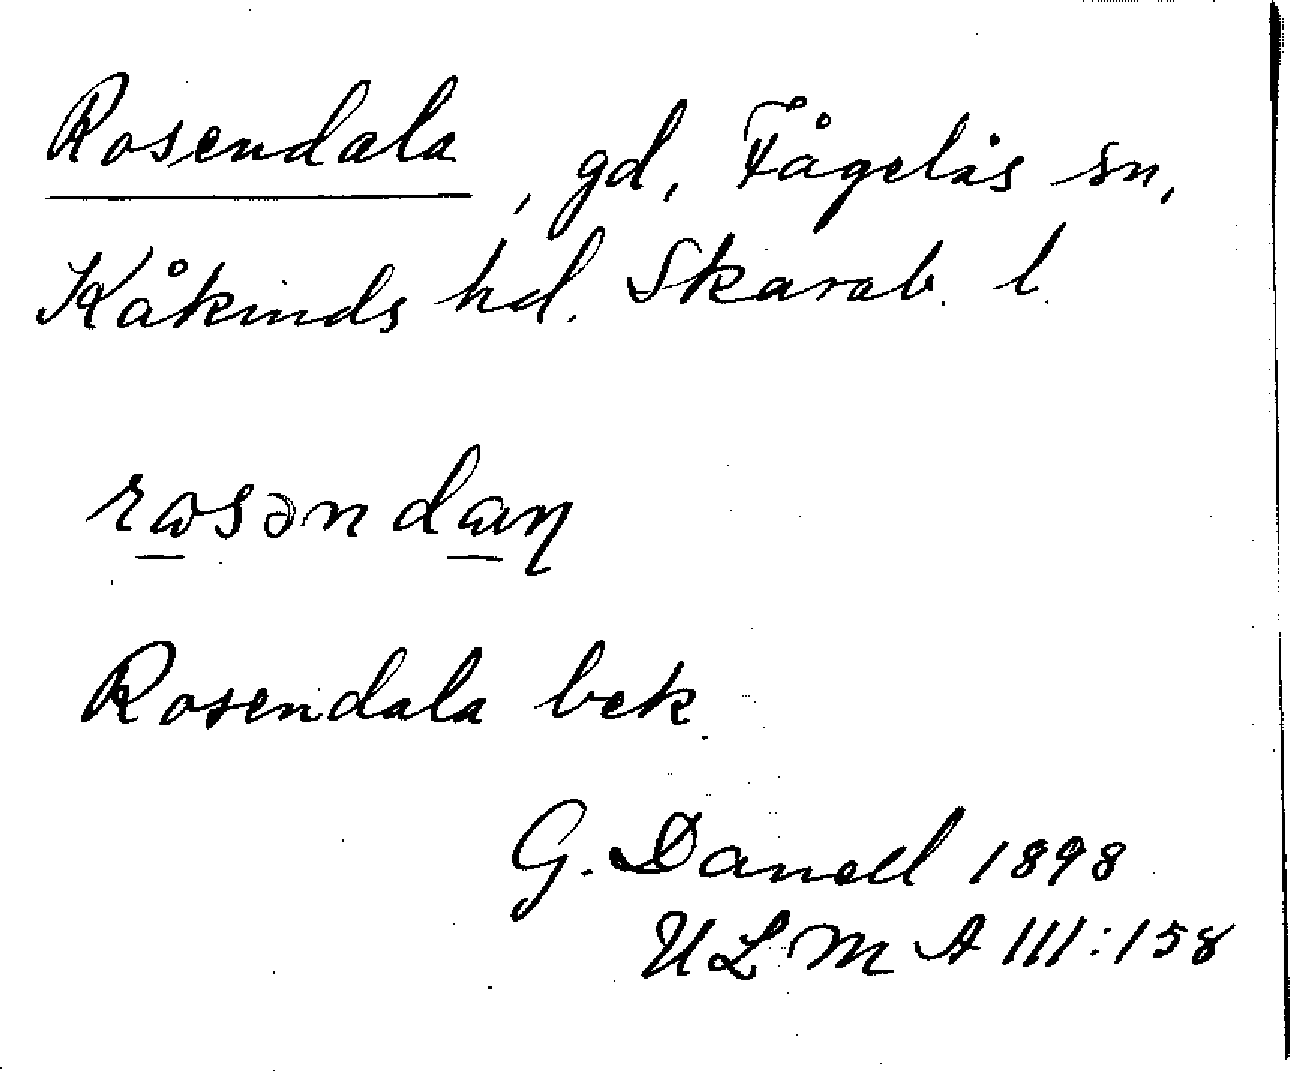 Rosendala, gd, Fågelås sn,
Kåkinds hd. Skarab. l.
Rosendala bek
G. Danell 1898
ULMA III:158